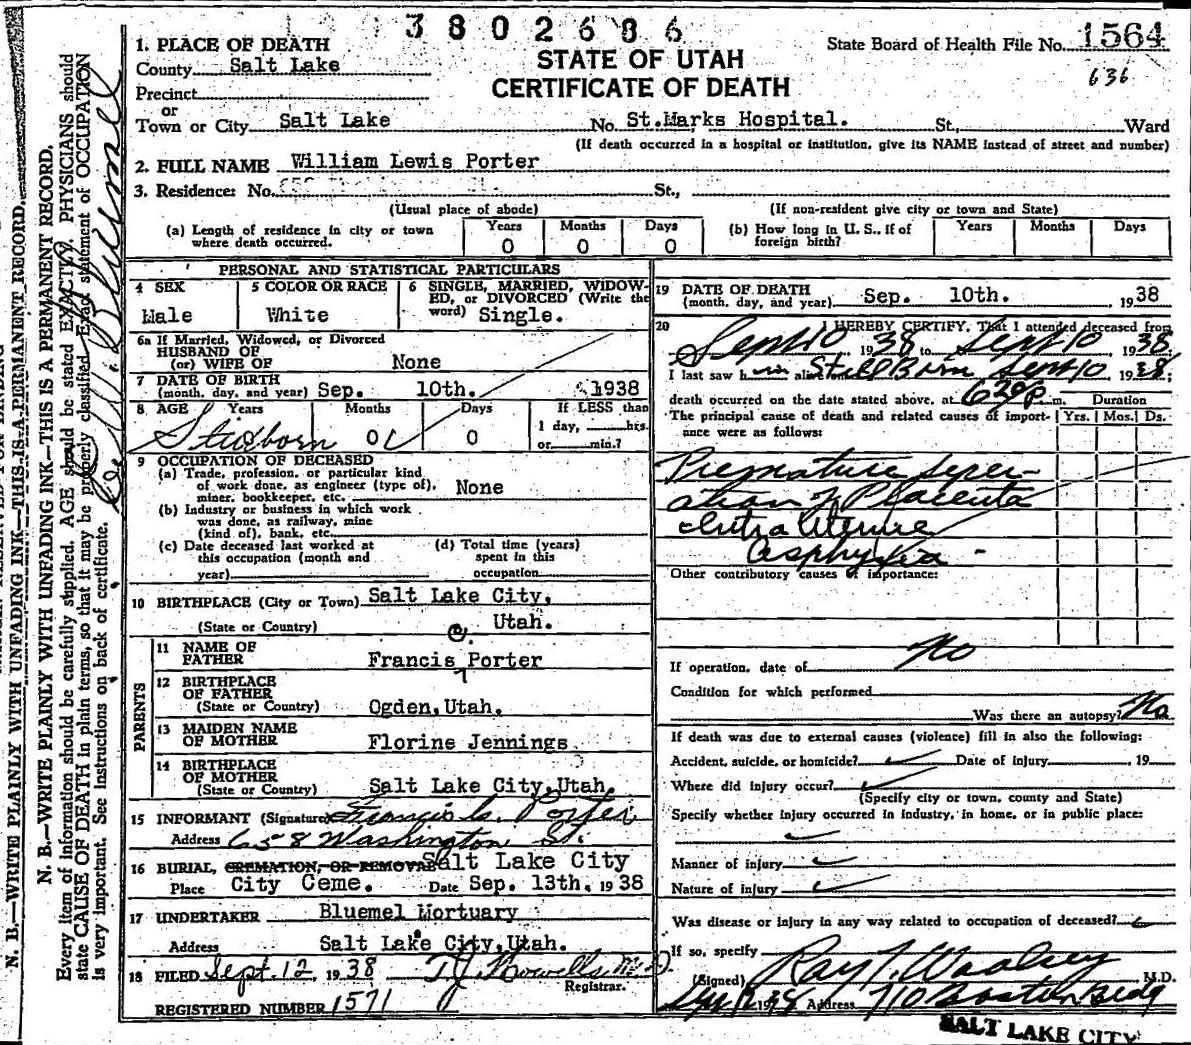 3802686
1. PLACE OF DEATH
STATE OF UTAH
CERTIFICATE OF DEATH
State Board of Health File No. 1564
636
County Salt Lake
Precinct
or
Town or City Salt Lake No. St.Marks Hospital. St., Ward
(If death occurred in a hospital or institution, give its NAME instead of street and number)
2. FULL NAME William Lewis Porter
3. Residence: No. St.,
(Usual place of abode) (If non-resident give city or town and State)
(a) Length of residence in city or town where death occurred. Years 0 Months 0 Days 0
(b) How long in U. S., if of foreign birth? Years Months Days
PERSONAL AND STATISTICAL PARTICULARS
4 SEX Male
5 COLOR OR RACE White
6 SINGLE, MARRIED, WIDOWED, or DIVORCED (Write the word) Single.
6a If Married, Widowed, or Divorced
HUSBAND OF
(or) WIFE OF None
7 DATE OF BIRTH
(month, day, and year) Sep. 10th. 1938
8 AGE Years Months Days If LESS than
Stillborn 0 0 1 day, hrs.
or min.?
9 OCCUPATION OF DECEASED
(a) Trade, profession, or particular kind
of work done, as engineer (type of),
miner, bookkeeper, etc. None
(b) Industry or business in which work
was done, as railway, mine
(kind of), bank, etc.
(c) Date deceased last worked at
this occupation (month and
year)
(d) Total time (years)
spent in this
occupation
10 BIRTHPLACE (City or Town) Salt Lake City,
(State or Country) Utah.
11 NAME OF
FATHER Francis C. Porter
12 BIRTHPLACE
OF FATHER
(State or Country) Ogden, Utah.
13 MAIDEN NAME
OF MOTHER Florine Jennings
14 BIRTHPLACE
OF MOTHER
(State or Country) Salt Lake City, Utah.
PARENTS
15 INFORMANT (Signature) Francis C. Porter
Address 658 Washington St.
16 BURIAL, CREMATION, OR REMOVAL Salt Lake City
Place City Ceme. Date Sep. 13th. 1938
17 UNDERTAKER Bluemel Mortuary
Address Salt Lake City, Utah.
18 FILED Sept. 12, 1938 T.J. Howells M.D.
Registrar.
REGISTERED NUMBER 1571
19 DATE OF DEATH
(month, day, and year) Sep. 10th. 1938
20 I HEREBY CERTIFY, That I attended deceased from
Sept 10 1938 to Sept 10 1938
I last saw him alive on Still Born Sept 10 1938;
death occurred on the date stated above, at 629 P. m. Duration
The principal cause of death and related causes of importance were as follows: Yrs. Mos. Ds.
Premature Seperation
of Placenta
Intra Uterine
Asphyxia -
Other contributory causes of importance:
If operation, date of No
Condition for which performed
Was there an autopsy? No
If death was due to external causes (violence) fill in also the following:
Accident, suicide, or homicide? Date of Injury 19
Where did injury occur?
(Specify city or town, county and State)
Specify whether injury occurred in industry, in home, or in public place:
Manner of injury
Nature of injury
Was disease or injury in any way related to occupation of deceased?
If so, specify
(Signed) Ray T. Woolsey M.D.
1938 Address 710 Boston Bldg
SALT LAKE CITY
N. B.—WRITE PLAINLY WITH UNFADING INK—THIS IS A PERMANENT RECORD.
N. B.—WRITE PLAINLY WITH UNFADING INK—THIS IS A PERMANENT RECORD.
Every item of information should be carefully supplied. AGE should be stated EXACTLY. PHYSICIANS should
state CAUSE OF DEATH in plain terms, so that it may be properly classified. Exact statement of OCCUPATION
is very important. See instructions on back of certificate.
Bluemel